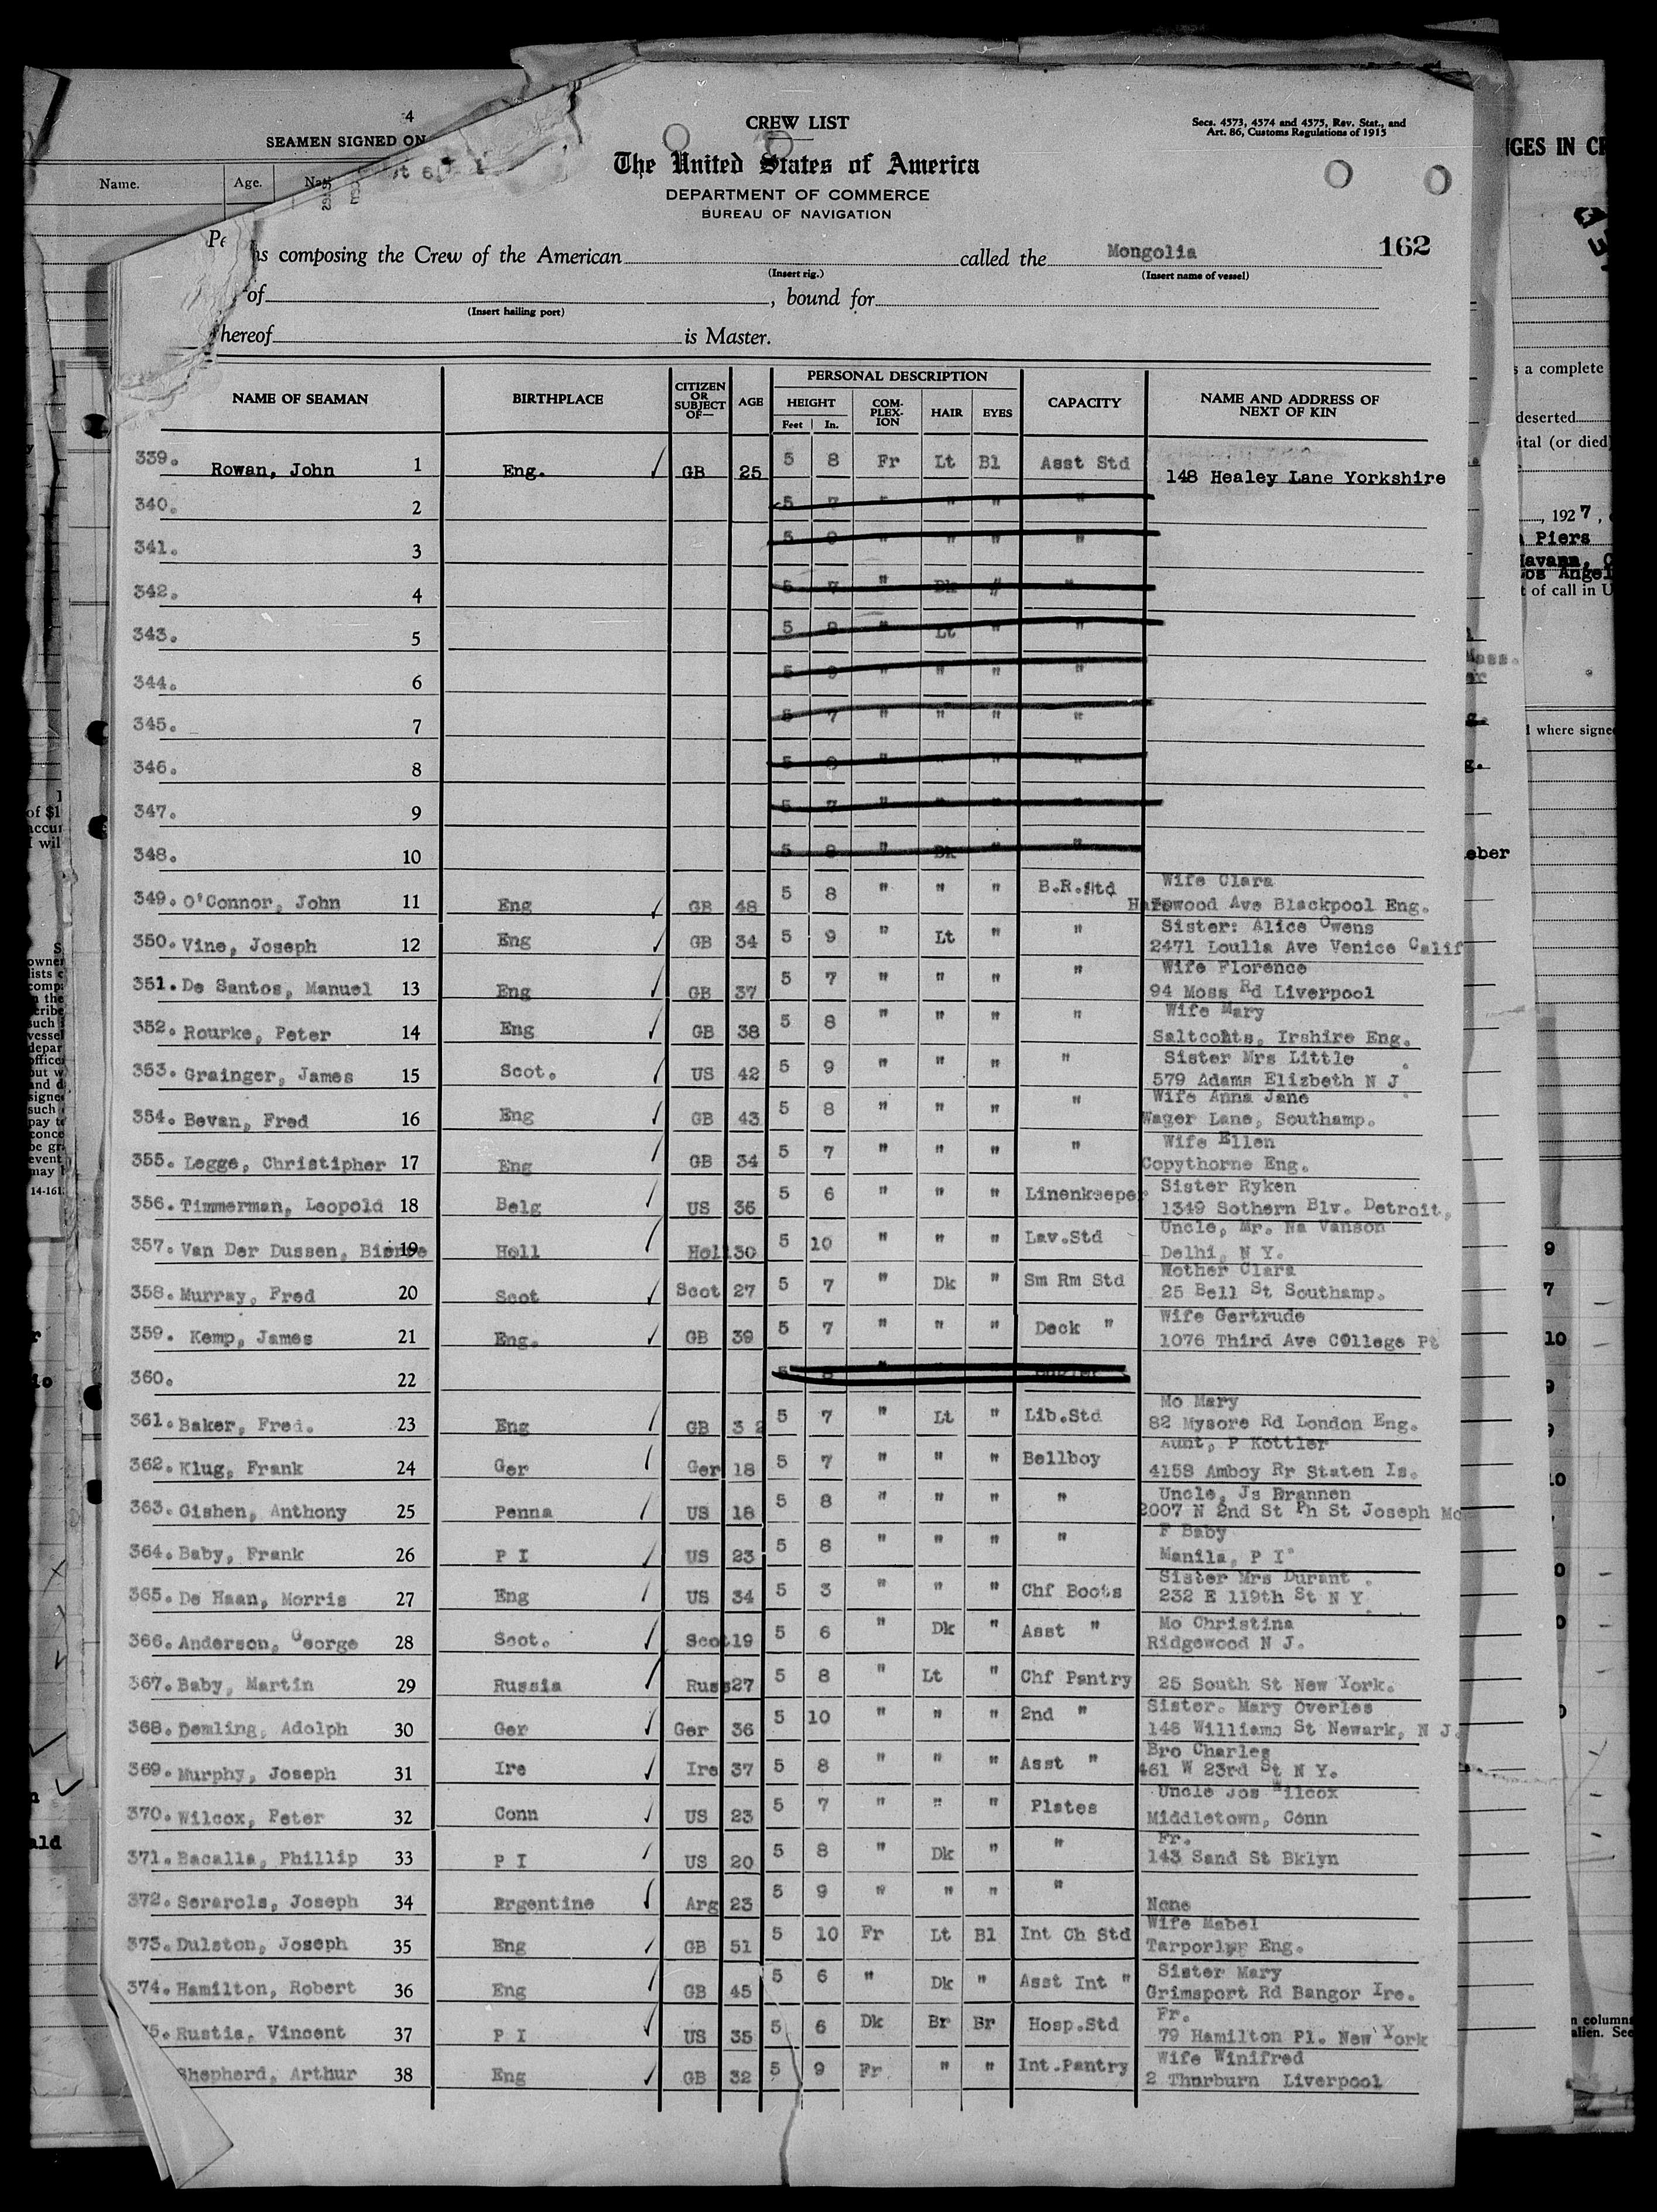 4
SEAMEN SIGNED ON
Name.
Age.
CREW LIST
The United States of America
DEPARTMENT OF COMMERCE
BUREAU OF NAVIGATION
Secs. 4573, 4574 and 4575, Rev. Stat., and
Art. 86, Customs Regulations of 1915
162
composing the Crew of the American called the Mongolia
(Insert rig.) (Insert name of vessel)
of , bound for
(Insert hailing port)
hereof is Master.
NAME OF SEAMAN BIRTHPLACE CITIZEN OR SUBJECT OF— AGE PERSONAL DESCRIPTION CAPACITY NAME AND ADDRESS OF NEXT OF KIN
HEIGHT COM-PLEX-ION HAIR EYES
Feet In.
339. Rowan, John 1 Eng. GB 25 5 8 Fr Lt Bl Asst Std 148 Healey Lane Yorkshire
340. 2 5 7 " " " "
341. 3 5 9 " " " "
342. 4 5 7 " Dk " "
343. 5 5 8 " Lt " "
344. 6 5 9 " " " "
345. 7 5 7 " " " "
346. 8 5 " " " "
347. 9 5 7 " " " "
348. 10 5 8 " Dk " "
Wife Clara
349. O'Connor, John 11 Eng GB 48 5 8 " " " B.R.Std wood Ave Blackpool Eng.
Sister: Alice Owens
350. Vine, Joseph 12 Eng GB 34 5 9 " Lt " " 2471 Loulla Ave Venice Calif
Wife Florence
351. De Santos, Manuel 13 Eng GB 37 5 7 " " " " 94 Moss Rd Liverpool
Wife Mary
352. Rourke, Peter 14 Eng GB 38 5 8 " " " " Saltcoats, Irshire Eng.
Sister Mrs Little
353. Grainger, James 15 Scot. US 42 5 9 " " " " 579 Adams Elizbeth N J
Wife Anna Jane
354. Bevan, Fred 16 Eng GB 43 5 8 " " " " Wager Lane, Southamp.
Wife Ellen
355. Legge, Christipher 17 Eng GB 34 5 7 " " " " Copythorne Eng.
Sister Ryken
356. Timmerman, Leopold 18 Belg US 36 5 6 " " " Linenkeeper 1349 Sothern Blv. Detroit,
Uncle, Mr. Na Vanson
357. Van Der Dussen, 19 Holl Holl 30 5 10 " " " Lav.Std Delhi, N Y.
Mother Clara
358. Murray, Fred 20 Scot Scot 27 5 7 " Dk " Sm Rm Std 25 Bell St Southamp.
Wife Gertrude
359. Kemp, James 21 Eng. GB 39 5 7 " " " Deck " 1076 Third Ave College Pt
360. 22 5 8 " " "
Mo Mary
361. Baker, Fred. 23 Eng GB 32 5 7 " Lt " Lib.Std 82 Mysore Rd London Eng.
Aunt, P Kottler
362. Klug, Frank 24 Ger Ger 18 5 7 " " " Bellboy 4158 Amboy Rr Staten Is.
Uncle, Js Brannen
363. Gishen, Anthony 25 Penna US 18 5 8 " " " " 2007 N 2nd St Ph St Joseph Mo
F Baby
364. Baby, Frank 26 P I US 23 5 8 " " " " Manila, P I
Sister Mrs Durant
365. De Haan, Morris 27 Eng US 34 5 3 " " " Chf Boots 232 E 119th St N Y
Mo Christina
366. Anderson, George 28 Scot. Scot 19 5 6 " Dk " Asst " Ridgewood N J.
367. Baby, Martin 29 Russia Russ 27 5 8 " Lt " Chf Pantry 25 South St New York.
Sister. Mary Overles
368. Demling, Adolph 30 Ger Ger 36 5 10 " " " 2nd " 146 Williams St Newark, N J.
Bro Charles
369. Murphy, Joseph 31 Ire Ire 37 5 8 " " " Asst " 461 W 23rd St N Y.
Uncle Jos Wilcox
370. Wilcox, Peter 32 Conn US 23 5 7 " " " Plates Middletown, Conn
Fr.
371. Bacalla, Phillip 33 P I US 20 5 8 " Dk " " 143 Sand St Bklyn
372. Serarols, Joseph 34 Ergentine Arg 23 5 9 " " " " None
Wife Mabel
373. Dulston, Joseph 35 Eng GB 51 5 10 Fr Lt Bl Int Ch Std Tarporley Eng.
Sister Mary
374. Hamilton, Robert 36 Eng GB 45 5 6 " Dk " Asst Int " Grimsport Rd Bangor Ire.
Fr.
5. Rustia, Vincent 37 P I US 35 5 6 Dk Br Br Hosp.Std 79 Hamilton Pl. New York
Wife Winifred
Shepherd, Arthur 38 Eng GB 32 5 9 Fr " " Int.Pantry 2 Thurburn Liverpool
a complete
deserted
ital (or died
, 1927,
Piers
of call in U
where signe
14-161